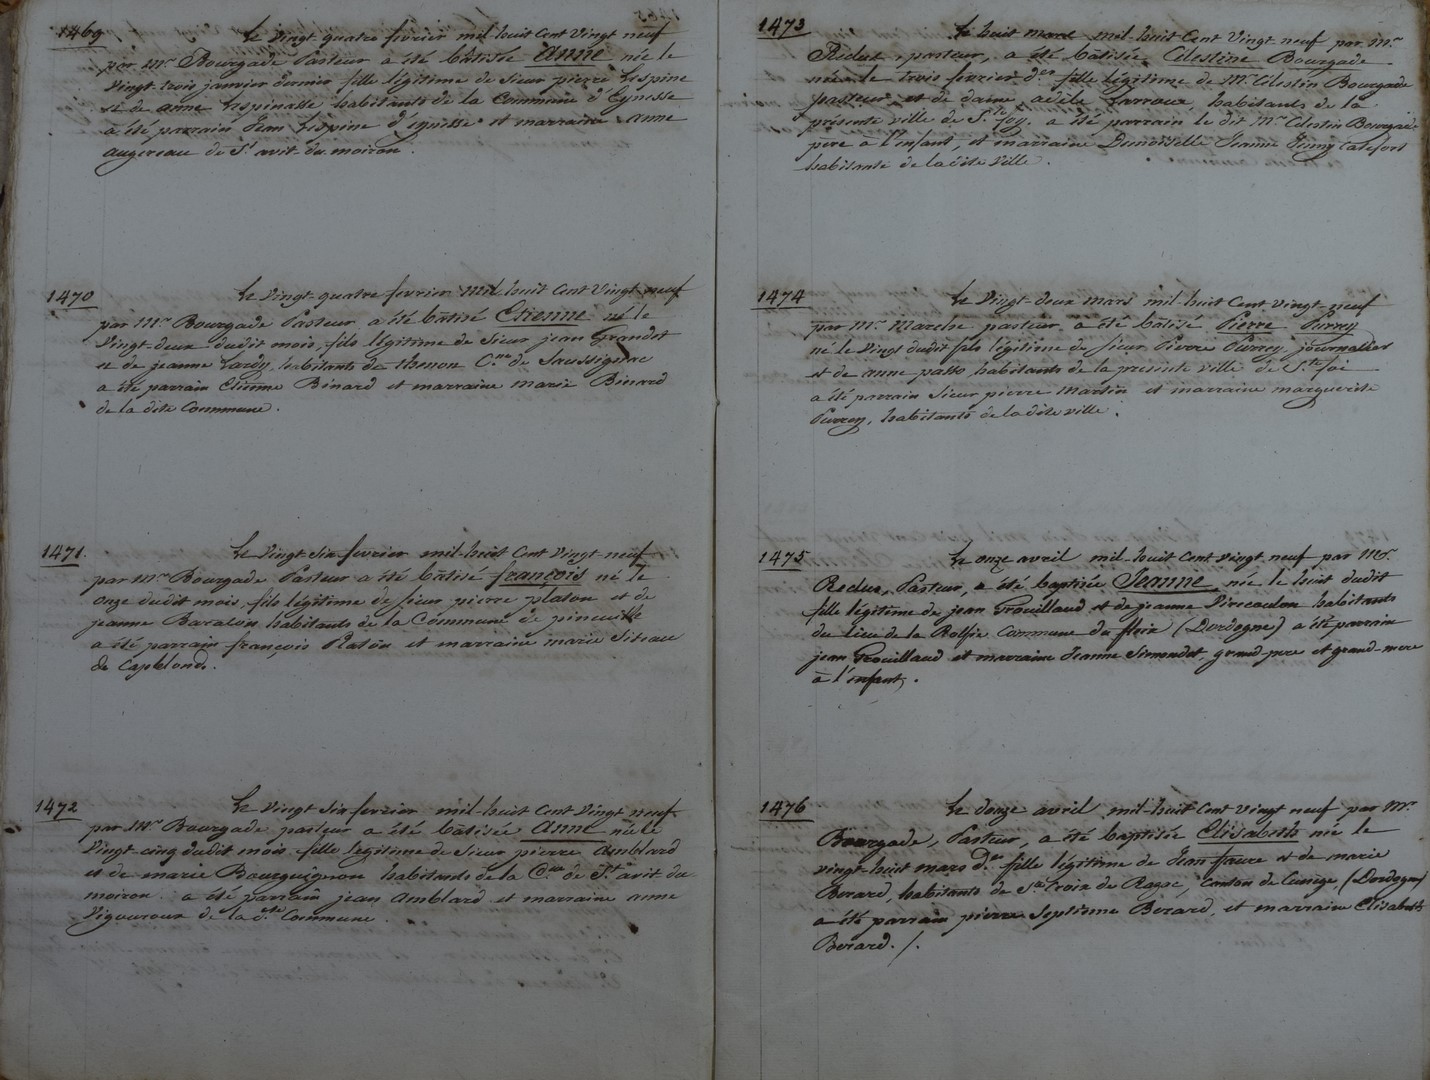 1469
Le vingt quatre fevrier mil huit Cent Vingt neuf
par Mr Bourgade Pasteur a été bâtisée Anne née le
vingt trois janvier dernier fille légitime de Sieur pierre Lespine
et de anne Lespinasse habitants de la Commune d'Eynesse
a été parrain Jean Lespine d'Eynesse et marraine anne
augereau de St avit du moiron.
1470
Le vingt quatre fevrier mil huit Cent Vingt neuf
par Mr Bourgade Pasteur a été bâtisé Etienne né le
Vingt-deux dudit mois, fils légitime de Sieur jean Grandet
et de jeanne Lardy, habitants de thenon Cne de Saussignac
a été parrain Etienne Binard et marraine marie Binard
de la dite Commune.
1471.
Le vingt six fevrier mil-huit Cent Vingt-neuf
par Mr Bourgade Pasteur a été bâtisé françois né le
onze dudit mois, fils légitime de Sieur pierre platon et de
jeanne habitants de la Commune de pineuilh
a été parrain françois Platon et marraine marie
de Capblond.
1472
Le vingt six fevrier mil-huit Cent Vingt-neuf
par Mr Bourgade pasteur a été bâtisée Anne née le
Vingt-cinq dudit mois fille légitime de Sieur pierre Amblard
et de marie Bourguignon habitants de la Cne de St avit du
moiron. a été parrain jean Amblard et marraine anne
Vigouroux de la dte Commune.
1473
Le huit mars mil-huit Cent Vingt neuf par Mr
Reclus, pasteur, a été bâtisée Célestine Bourgade
née le trois fevrier der fille légitime de Mr Célestin Bourgade
pasteur et de dame adèle Larroux, habitants de la
présente ville de Ste foy. a été parrain le dit Mr Célestin Bourgade
pere à l'enfant, et marraine Demoiselle Jeanne Jenny
habitante de la dite ville.
1474
Le Vingt-deux mars mil huit Cent Vingt-neuf
par Mr Marche pasteur a été bâtisé Pierre Purrey
né le Vingt dudit fils légitime de Sieur Pierre Purrey, journallier
et de anne habitants de la presente ville de Ste foi
a été parrain Sieur pierre Martin et marraine marguerite
Purrey, habitants de la dite ville.
1475
Le onze avril mil-huit Cent Vingt neuf par Mr.
Reclus, Pasteur, a été baptisée Jeanne née le huit dudit
fille légitime de jean Trouillaud et de jeanne Virecaulon habitants
du lieu de la Commune du fleix (Dordogne) a été parrain
jean Trouillaud et marraine Jeanne Simondet, grand-pere et grand-mere
à l'enfant.
1476
Le douze avril mil-huit Cent Vingt neuf par Mr
Bourgade, Pasteur, a été baptisée Elisabeth né le
vingt-huit mars der fille légitime de Jean faure et de marie
Berard, habitants de Ste Croix de Razac, Canton de (Dordogne)
a été parrain pierre Septisme Berard, et marraine Elisabeth
Berard. /.